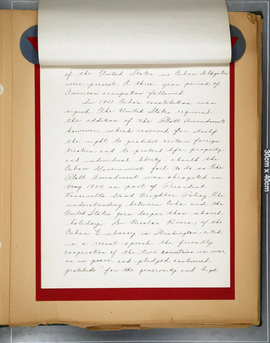 of the United States no Cuban delegates
were present. A three year period of
American occupation followed.
In 1901 Cuban constitution was
signed. The United States required
the addition of the Platt Amendment
however, which reserved for itself
the right to prohibit certain foreign
treaties, and to protect life, property
and individual liberty should the
Cuban Government fail to do so. The
Platt Amendment was abrogated in
May 1934 as part of President
Roosevelt's Good Neighbor Policy. The
understanding between Cuba and the
United States goes deeper than shared
holidays. Dr. Nicolas Rivero of the
Cuban Embassy in Washington cited
in a recent speech the friendly
cooperation of the two countries in war
as in peace and pledged continued
gratitude "for the generosity and high
30cm x 40cm